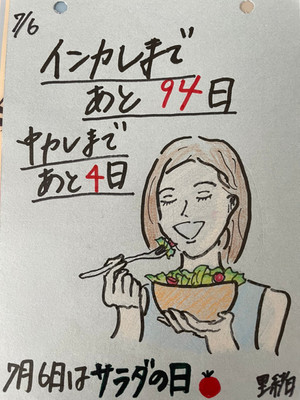 7/6
インカレまで
あと 94日
中カレまで
あと4日
7月6日はサラダの日